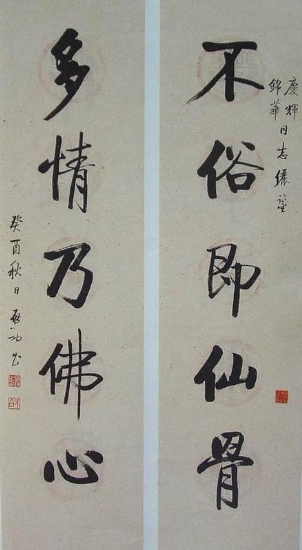 慶輝
錦華同志儷鑒
不俗即仙骨
多情乃佛心
癸酉秋日启功書